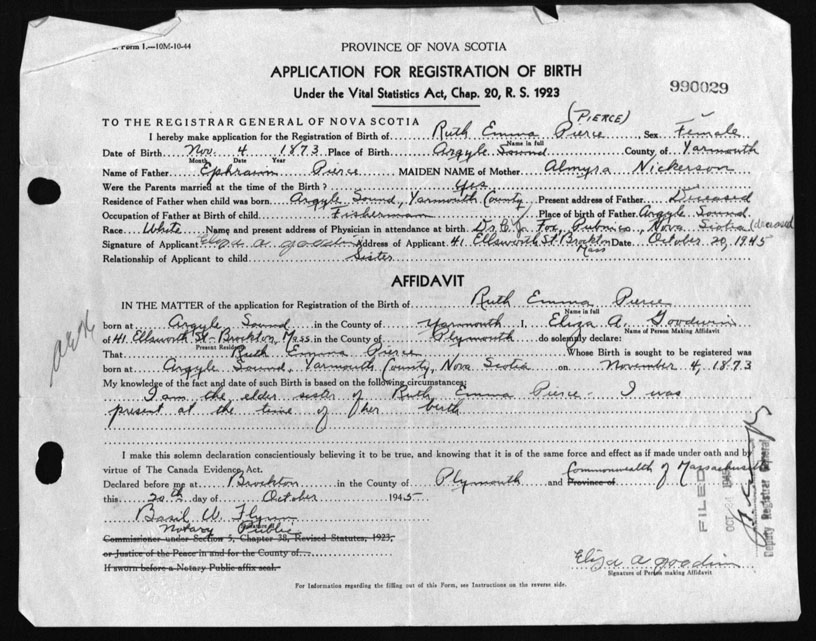 Form 1.—10M-10-44
PROVINCE OF NOVA SCOTIA
APPLICATION FOR REGISTRATION OF BIRTH
Under the Vital Statistics Act, Chap. 20, R. S. 1923
990029
(PIERCE)
TO THE REGISTRAR GENERAL OF NOVA SCOTIA
I hereby make application for the Registration of Birth of Ruth Emma Pierce, Sex Female
Name in full
Date of Birth Nov. 4 1873 Place of Birth Argyle Sound County of Yarmouth
Month Date Year
Name of Father Ephraim Pierce MAIDEN NAME of Mother Almyra Nickerson
Were the Parents married at the time of the Birth? Yes
Residence of Father when child was born Argyle Sound, Yarmouth County Present address of Father Deceased
Occupation of Father at Birth of child Fisherman Place of birth of Father Argyle Sound
Race White Name and present address of Physician in attendance at birth. Dr. Fox, Pubnico, Nova Scotia (deceased
Signature of Applicant Eliza A. Goodwin Address of Applicant 41 Ellsworth St Brockton Mass Date October 20, 1945
Relationship of Applicant to child Sister
AFFIDAVIT
IN THE MATTER of the application for Registration of the Birth of Ruth Emma Pierce
Name in full
born at Argyle Sound in the County of Yarmouth I, Eliza A. Goodwin
Name of Person Making Affidavit
of 41 Ellsworth St- Brockton, Mass. in the County of Plymouth do solemnly declare:
Present Residence
That Ruth Emma Pierce Whose Birth is sought to be registered was
born at Argyle Sound, Yarmouth County, Nova Scotia on November 4, 1873
My knowledge of the fact and date of such Birth is based on the following circumstances:
I am the elder sister of Ruth Emma Pierce - I was
present at the time of her birth
I make this solemn declaration conscientiously believing it to be true, and knowing that it is of the same force and effect as if made under oath and by
virtue of The Canada Evidence Act.
Commonwealth of Massachusetts
Declared before me at Brockton in the County of Plymouth and Province of
this 20th day of October 1945
Basil W. Flynn
Notary Public
Commissioner under Section 5, Chapter 38, Revised Statutes, 1923,
or Justice of the Peace in and for the County of
If sworn before a Notary Public affix seal.
Eliza A Goodwin
Signature of Person making Affidavit
For Information regarding the filling out of this Form, see Instructions on the reverse side.
FILED
OCT 24 1945
Deputy Registrar General